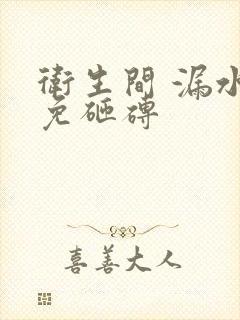 衛生間 漏水
免砸磚
喜善大人